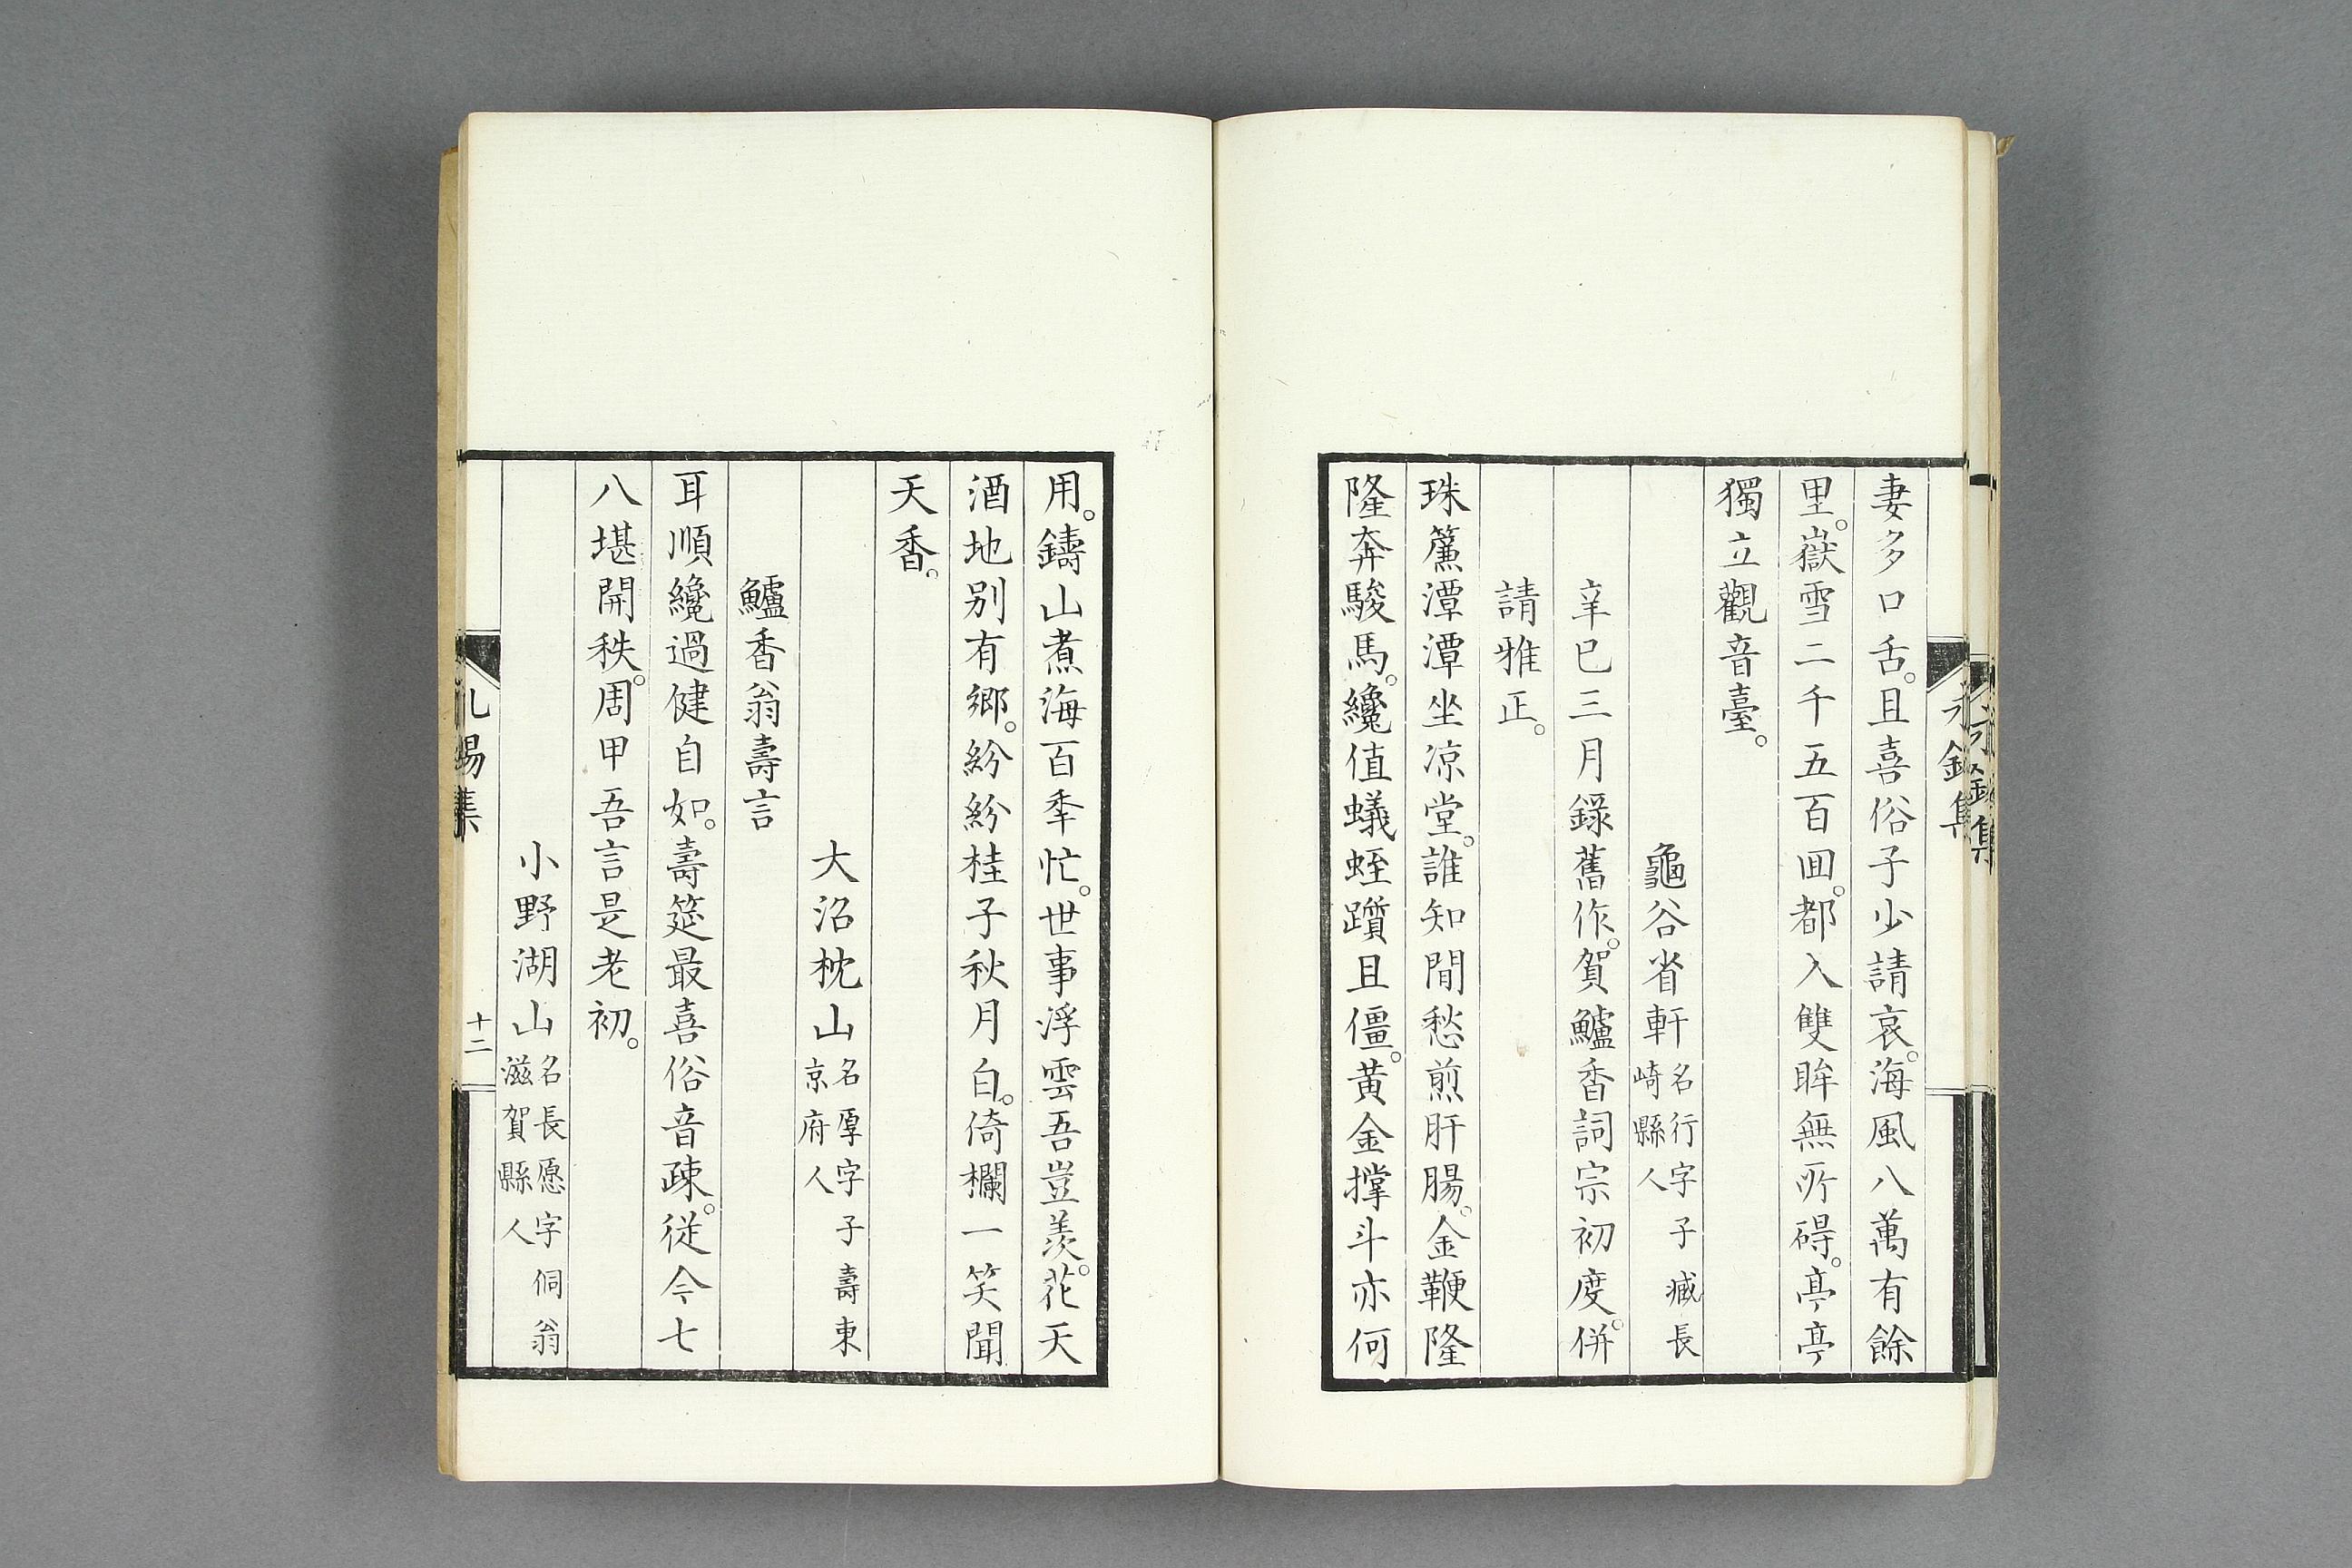 妻多口舌。且喜俗子少請哀。海風八萬有餘
里。嶽雪二千五百囬。都入雙眸無所碍。亭亭
獨立觀音臺。
龜谷省軒名行字子臧長
崎縣人
辛巳三月錄舊作。賀鱸香詞宗初度。併
請雅正。
珠簾潭潭坐凉堂。誰知閒愁煎肝腸。金鞭隆
隆奔駿馬。纔值蟻蛭躓且僵。黃金撐斗亦何
用。鑄山煮海百年忙。世事浮雲吾豈羨。花天
酒地別有鄉。紛紛桂子秋月白。倚欄一笑聞
天香。
大沼枕山名厚字子壽東
京府人
鱸香翁壽言
耳順纔過健自如。壽筵最喜俗音疎。從今七
八堪開秩。周甲吾言是老初。
小野湖山名長愿字侗翁
滋賀縣人
十二